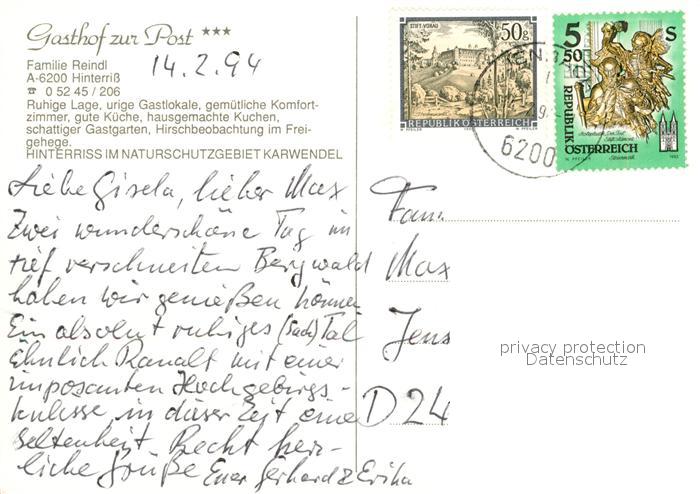 Gasthof zur Post ***
Familie Reindl
A-6200 Hinterriß
☎ 0 52 45 / 206
Ruhige Lage, urige Gastlokale, gemütliche Komfort-
zimmer, gute Küche, hausgemachte Kuchen,
schattiger Gastgarten, Hirschbeobachtung im Frei-
gehege.
HINTERRISS IM NATURSCHUTZGEBIET KARWENDEL
14.2.94
STIFT VORAU
50 g
REPUBLIK ÖSTERREICH
W. PFEILER
6200
5 50 S
REPUBLIK
ÖSTERREICH
W. PFEILER
Steiermark
Liebe Gisela, lieber Max
Zwei wunderschöne Tag im
tief verschneiten Bergwald
haben wir genießen können
Ein absolut ruhiges (Sack) Tal
ähnlich Ranalt mit einer
imposanten Hochgebirgs-
kulisse, in dieser Zeit eine
Seltenheit. Recht herz-
liche Grüße Euer Gerhard & Erika
Fam.
Max
Jens
D 24
privacy protection
Datenschutz